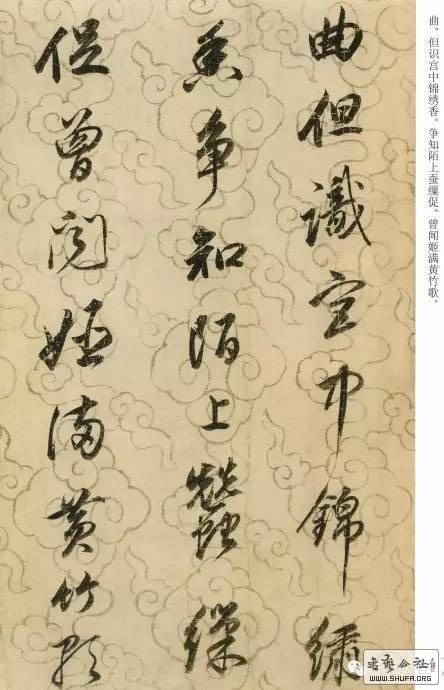 曲。但识宫中锦绣香。争知陌上蚕缫促。曾闻姬满黄竹歌，
曲但識宮中錦繡
香爭知陌上蠶繅
促曾聞姬滿黃竹歌
書藝公社
WWW.SHUFA.ORG